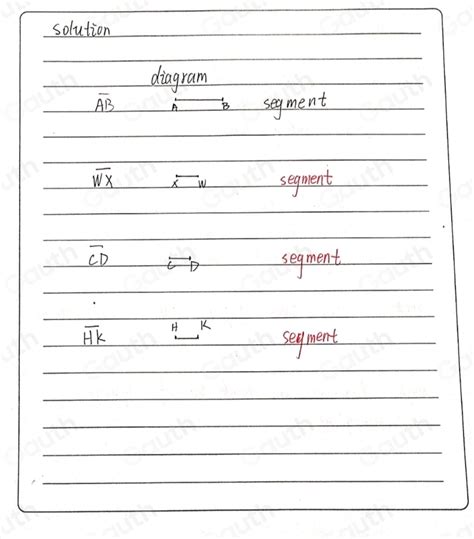 solution
diagram
AB A B segment
WX X W segment
CD C D segment
H K
HK segment